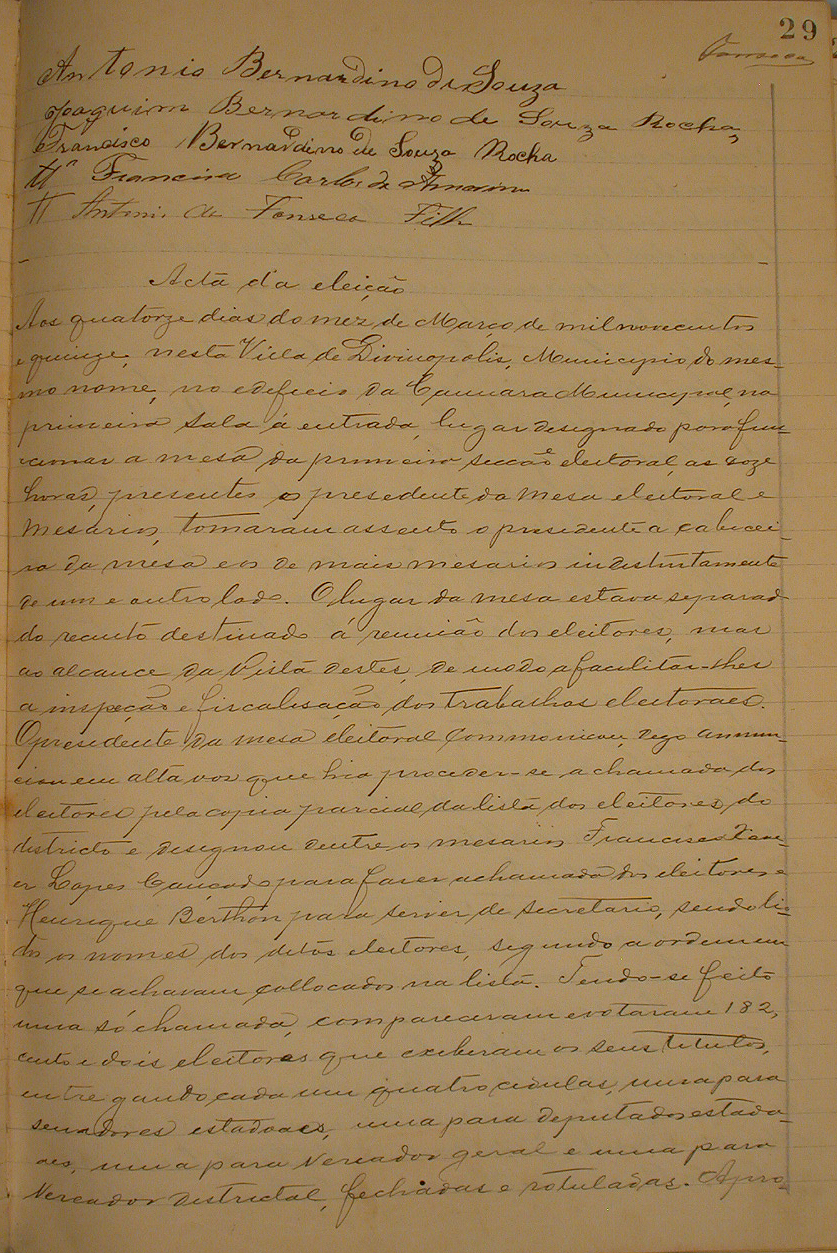 29
Fonseca
Antonio Bernardino de Souza
Joaquim Bernardino de Souza Rocha,
Francisco Bernardino de Souza Rocha
Francisca Carlos de Amorim
Antonio da Fonseca Filho
Acta da eleição
Aos quatorze dias do mez de Março de mil novecentos
e quinze, nesta Villa de Divinopolis, Municipio do mes-
mo nome, no edeficio da Camara Municipal, na
primeira sala á entrada, lugar designado para fun-
ccionar a mesa da primeira secção eleitoral, as doze
horas, presentes o presedente da mesa eleitoral e
mesarios, tomaram assento o presidente a cabecei-
ra da mesa e os de mais mesarios indestintamente
de um e outro lado. O lugar da mesa estava separado
do recinto destinado á reunião dos eleitores, mas
ao alcance da vista destes, de modo a facilitar-lhes
a inspeção e fiscalisação dos trabalhos eleitoraes.
O presedente da mesa eleitoral commonicou, digo annun-
ciou em alta voz que hia proceder-se a chamada dos
eleitores pela copia parcial da lista dos eleitores do
districto e designou dentre os mesarios Francisco Xavi-
er Lopes Cançado para fazer a chamada dos eleitores e
Henrique Berthon para server de secretario, sendo li-
dos os nomes dos ditos eleitores, segundo a ordem em
que se achavam collocados na lista. Tendo-se feito
uma só chamada, compareceram e votaram 182,
cento e dois eleitores que exeberam os seus titulos,
entregando cada um quatro cedulas, uma para
senadores estadoaes, uma para deputados estado-
aes, uma para vereador geral e uma para
vereador districtal, fechadas e rotuladas. Apro-